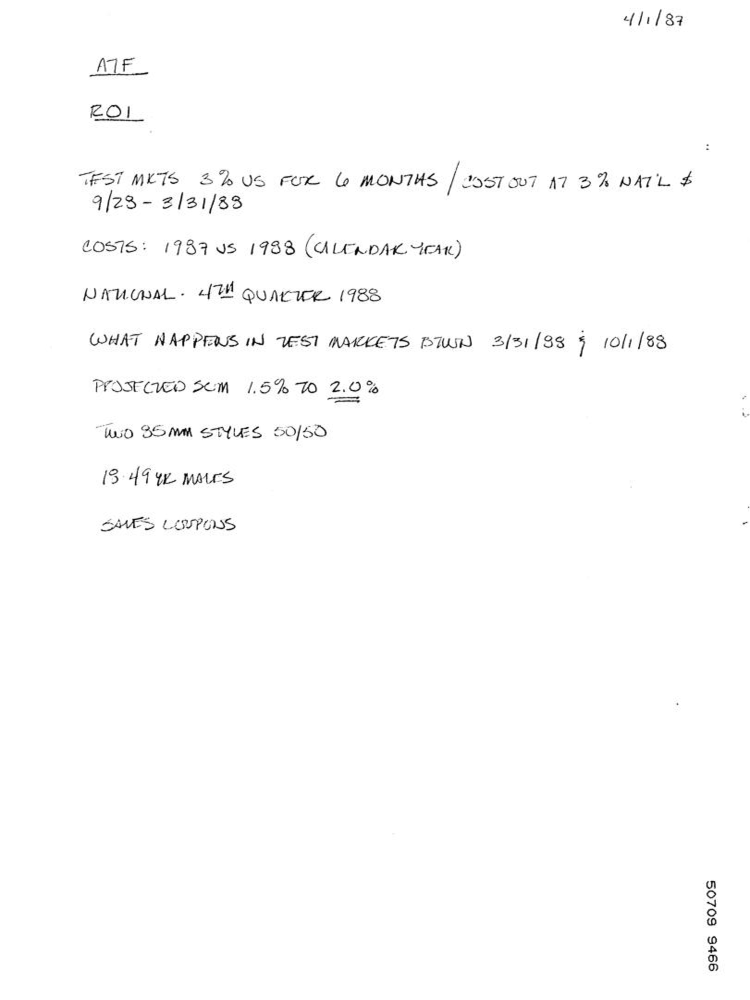 4/1/87
ATF
ROI
TEST MKTS 3% US FOR 6 MONTHS / COST OUT AT 3% NAT'L $
9/28 - 3/31/88
COSTS: 1987 VS 1988 (CALENDAR YEAR)
NATIONAL. 4TH QUARTER 1988
WHAT HAPPENS IN TEST MARKETS BTWN 3/31/88 & 10/1/88
PROJECTED SOM 1.5% TO 2.0%
TWO 85MM STYLES 50/50
18-49 YR MALES
SALES COUPONS
50709 9466